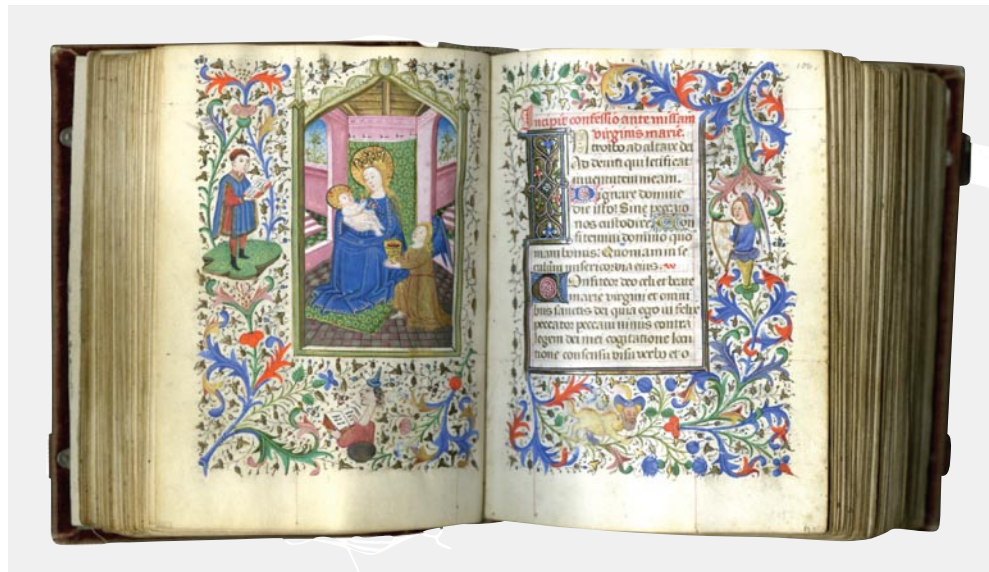 Incipit confessio ante missam
virginis marie.
Introibo ad altare dei
Ad deum qui letificat
iuventutem meam.
Dignare domine
die isto: Sine peccato
nos custodire. Con
fitemini domino quo
niam bonus: Quoniam in se
culum misericordia eius.
Confiteor deo celi et beate
marie virgini et omni
bus sanctis dei quia ego infelix
peccator peccavi nimis contra
legem dei mei cogitatione locu
tione consensu visu verbo et o